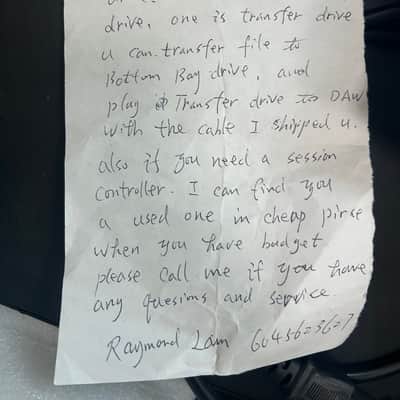 drive, one is transfer drive
u can transfer file to
Bottom Bay drive, and
play Transfer drive to DAW
with the cable I shipped u.
also if you need a session
controller. I can find you
a used one in cheap pirse
when you have budget
please call me if you have
any quesions and service
Raymond Lam